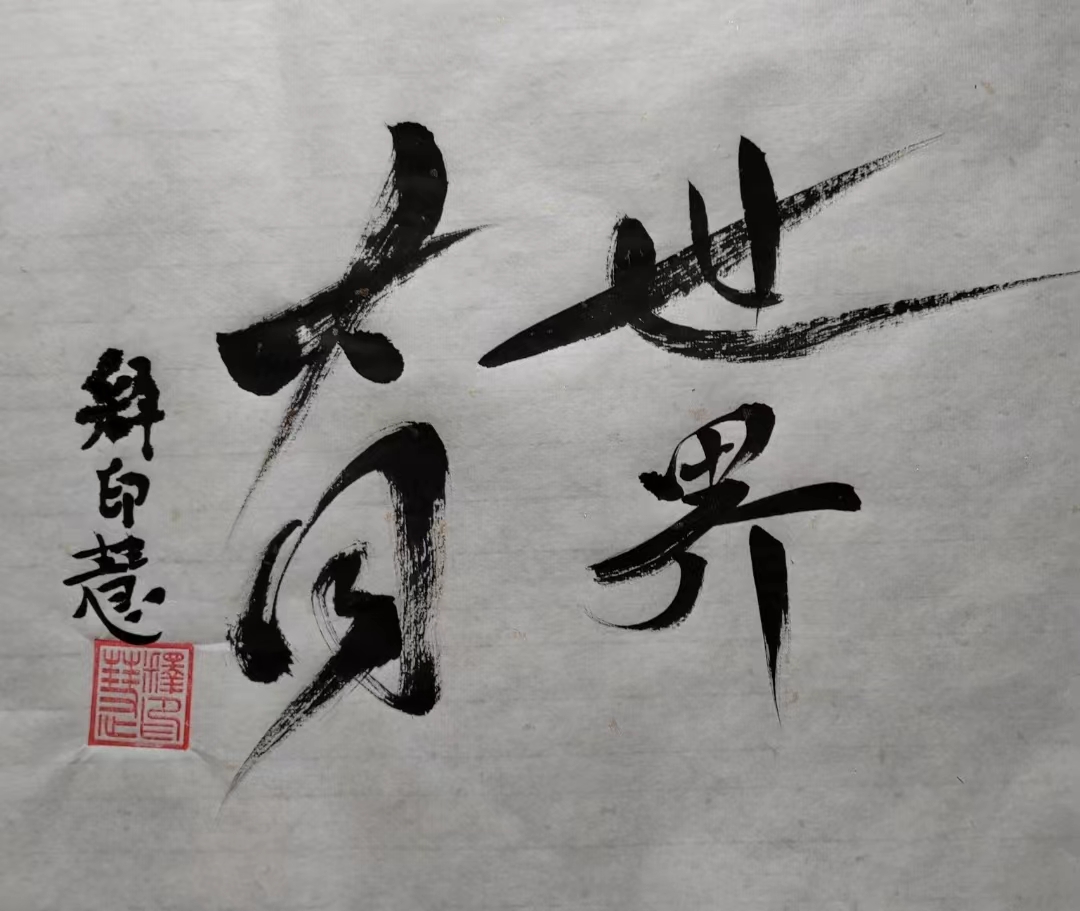 世界
大同
釋印慧
釋印慧